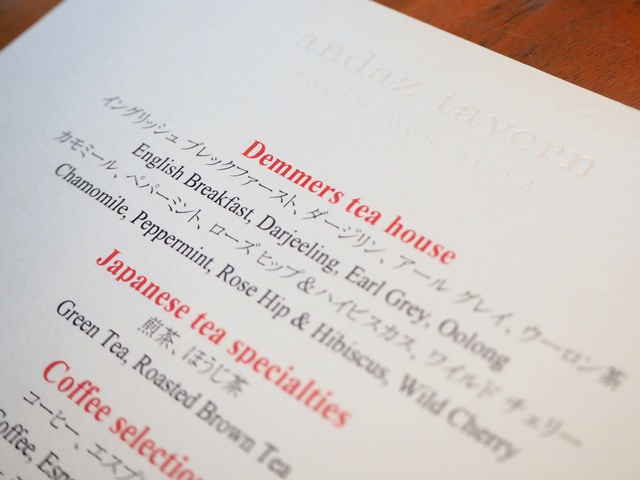 andaz tavern
Demmers tea house
イングリッシュ ブレックファースト、ダージリン、アール グレイ、ウーロン茶
English Breakfast, Darjeeling, Earl Grey, Oolong
カモミール、ペパーミント、ローズ ヒップ＆ハイビスカス、ワイルド チェリー
Chamomile, Peppermint, Rose Hip & Hibiscus, Wild Cherry
Japanese tea specialties
煎茶、ほうじ茶
Green Tea, Roasted Brown Tea
Coffee
コーヒー、